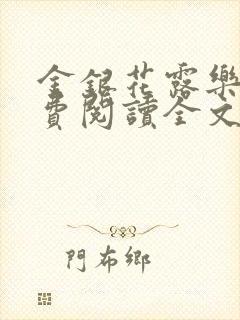 金銀花露樂
費閱讀全文
門布鄉